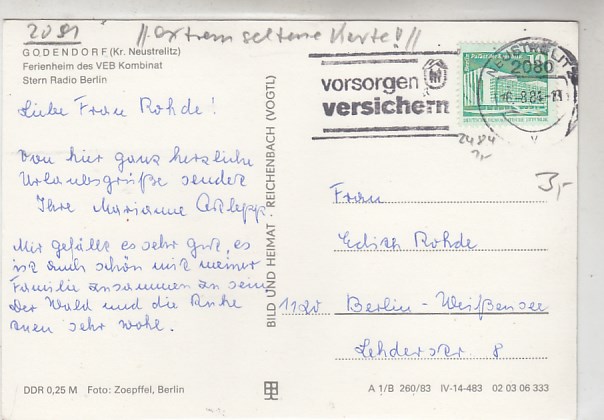 2081 //extrem seltene Karte!//
GODENDORF (Kr. Neustrelitz)
Ferienheim des VEB Kombinat
Stern Radio Berlin
vorsorgen
versichern
NEUSTRELITZ
2080
Liebe Frau Rohde!
Von hier ganz herzliche
Urlaubsgrüße sendet
Ihre Marianne
Mir gefällt es sehr gut, es
ist auch schön mit meiner
Familie zusammen zu sein
Der Wald und die Ruhe
tuen sehr wohl.
BILD UND HEIMAT REICHENBACH (VOGTL)
2484
3,-
Frau
Edith Rohde
1120 Berlin-Weißensee
Lehderstr. 8
DDR 0,25 M Foto: Zoepffel, Berlin
A 1/B 260/83 IV-14-483 02 03 06 333